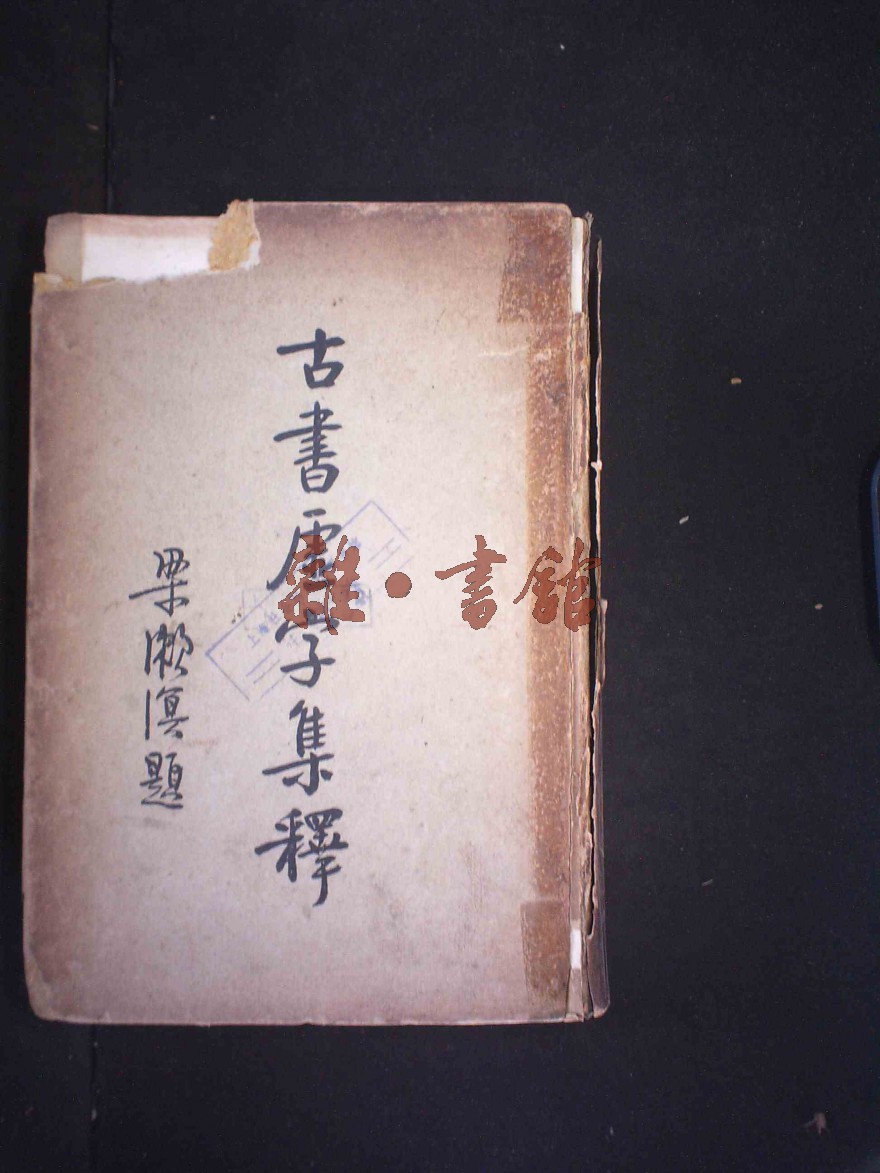 古書虛字集釋
梁漱溟題
雜·書館